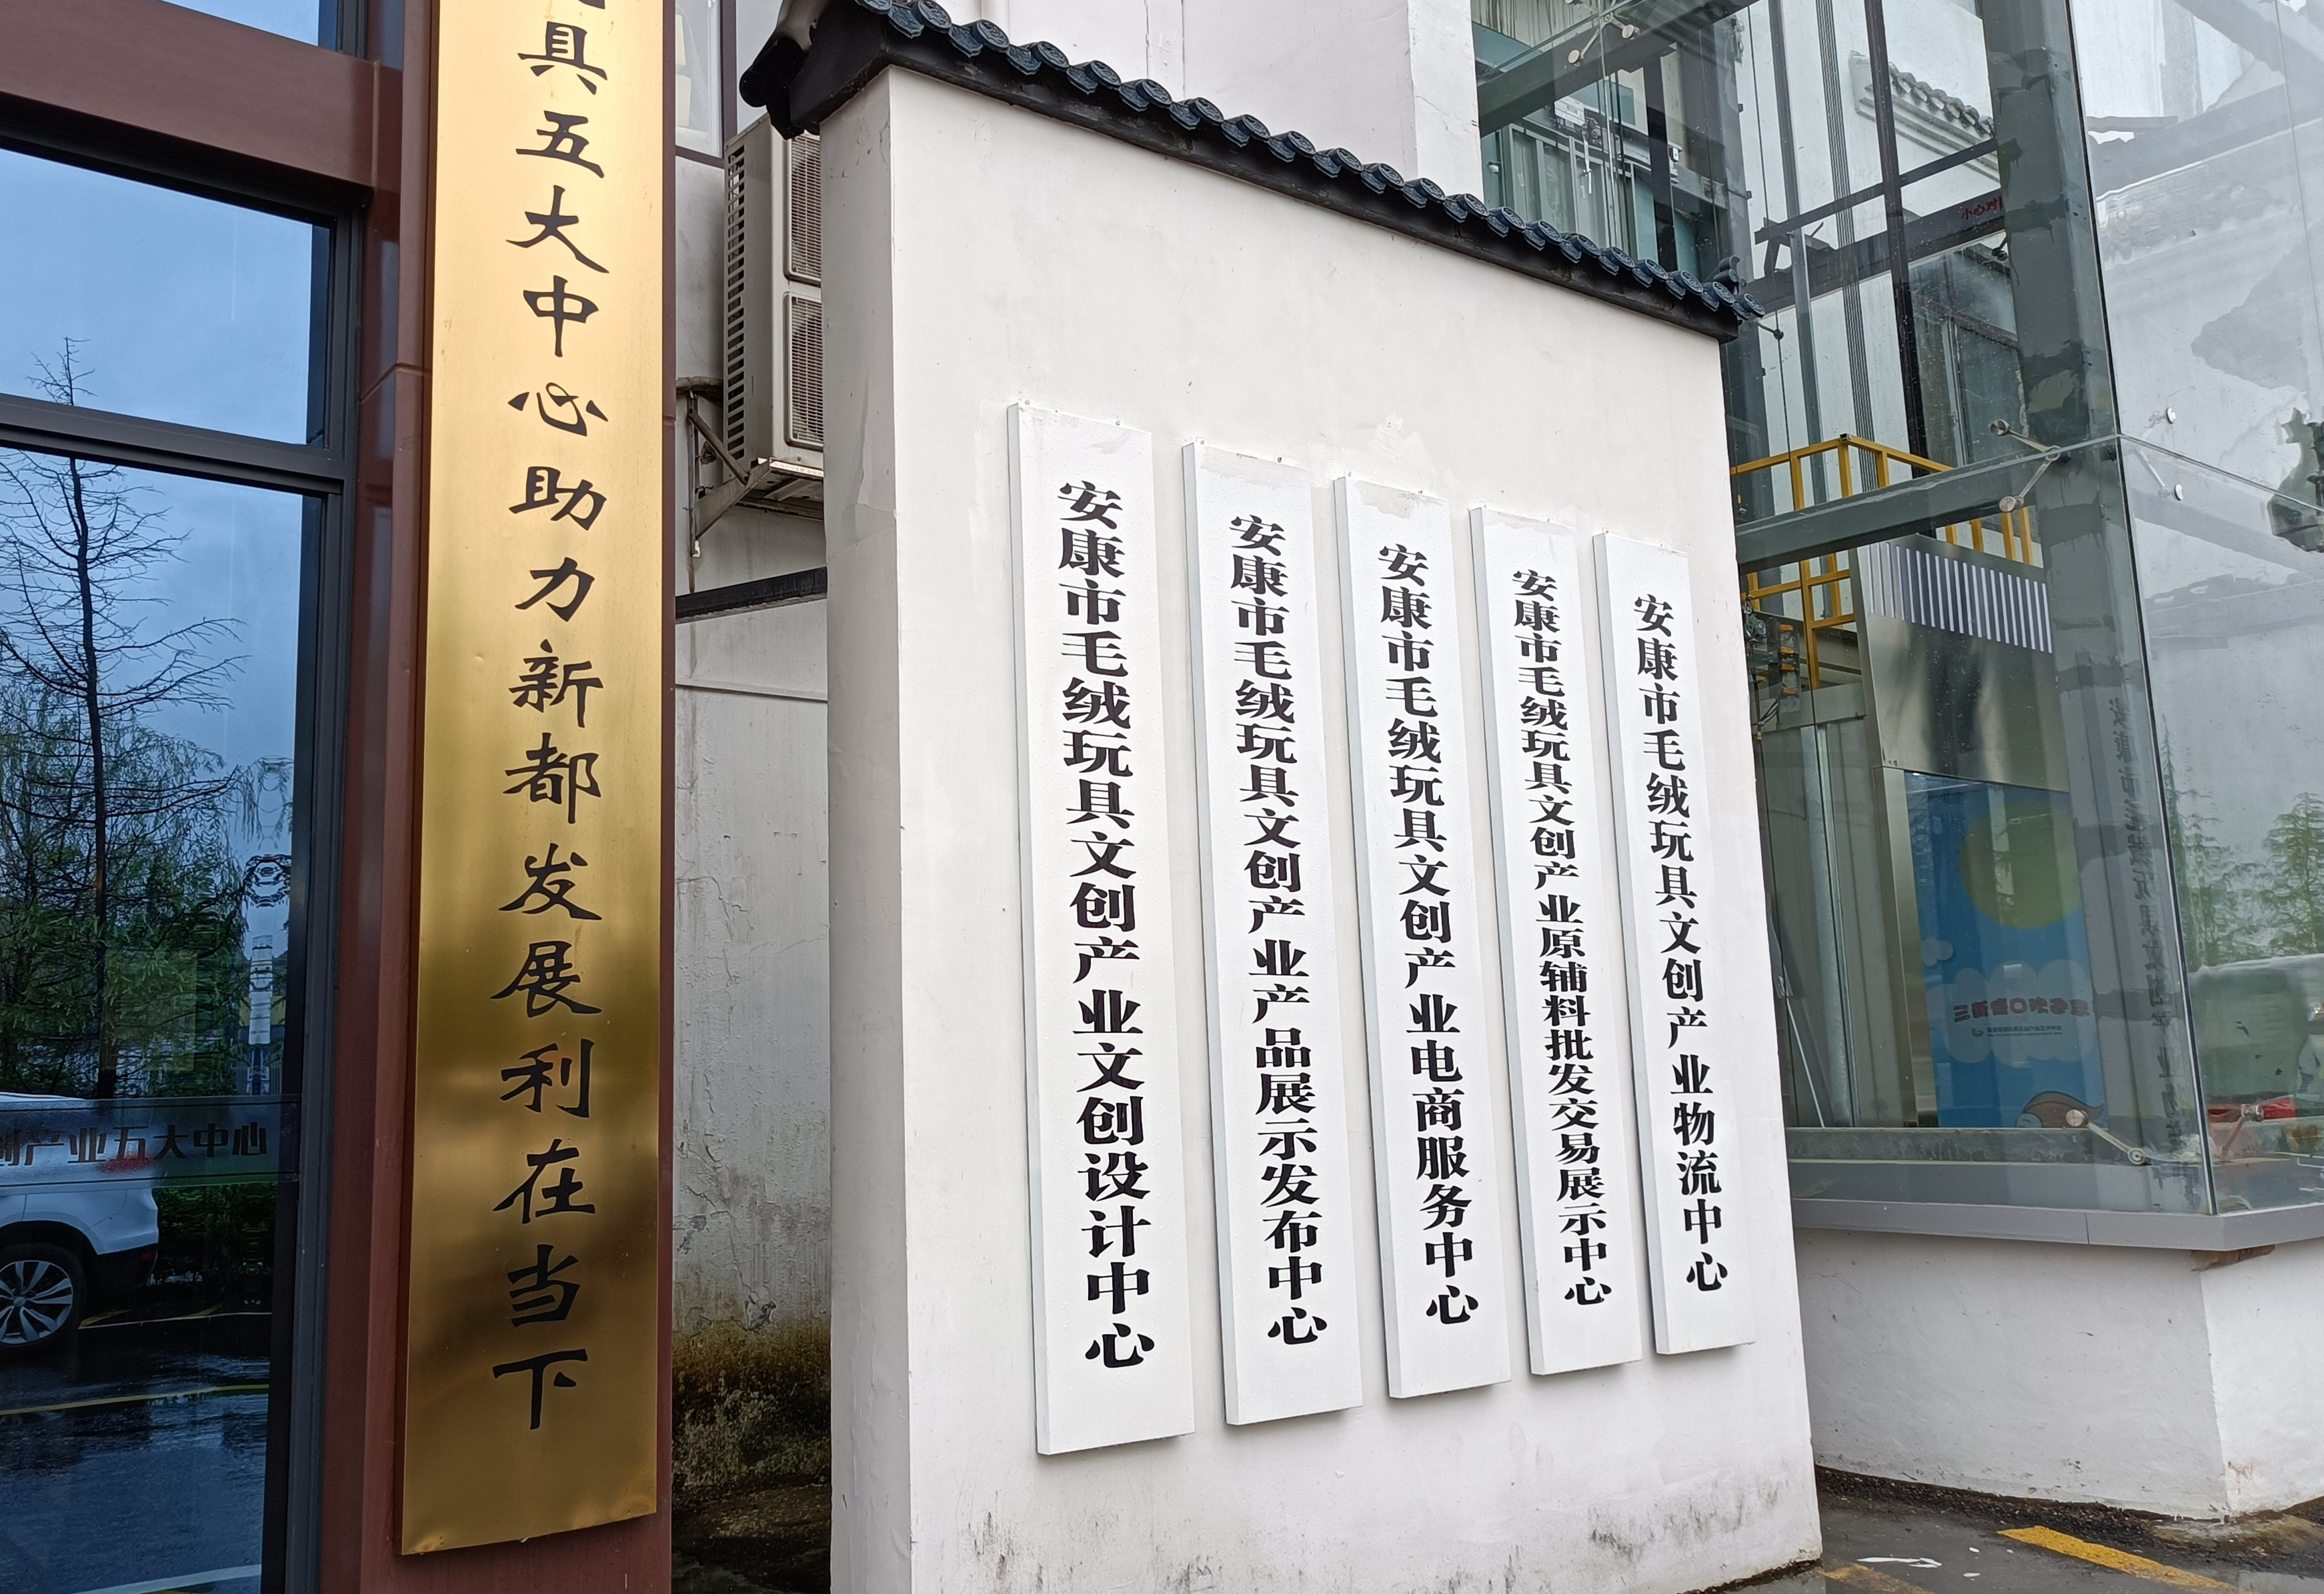 具五大中心助力新都发展利在当下
安康市毛绒玩具文创产业文创设计中心
安康市毛绒玩具文创产业产品展示发布中心
安康市毛绒玩具文创产业电商服务中心
安康市毛绒玩具文创产业原辅料批发交易展示中心
安康市毛绒玩具文创产业物流中心
创产业五大中心
小心